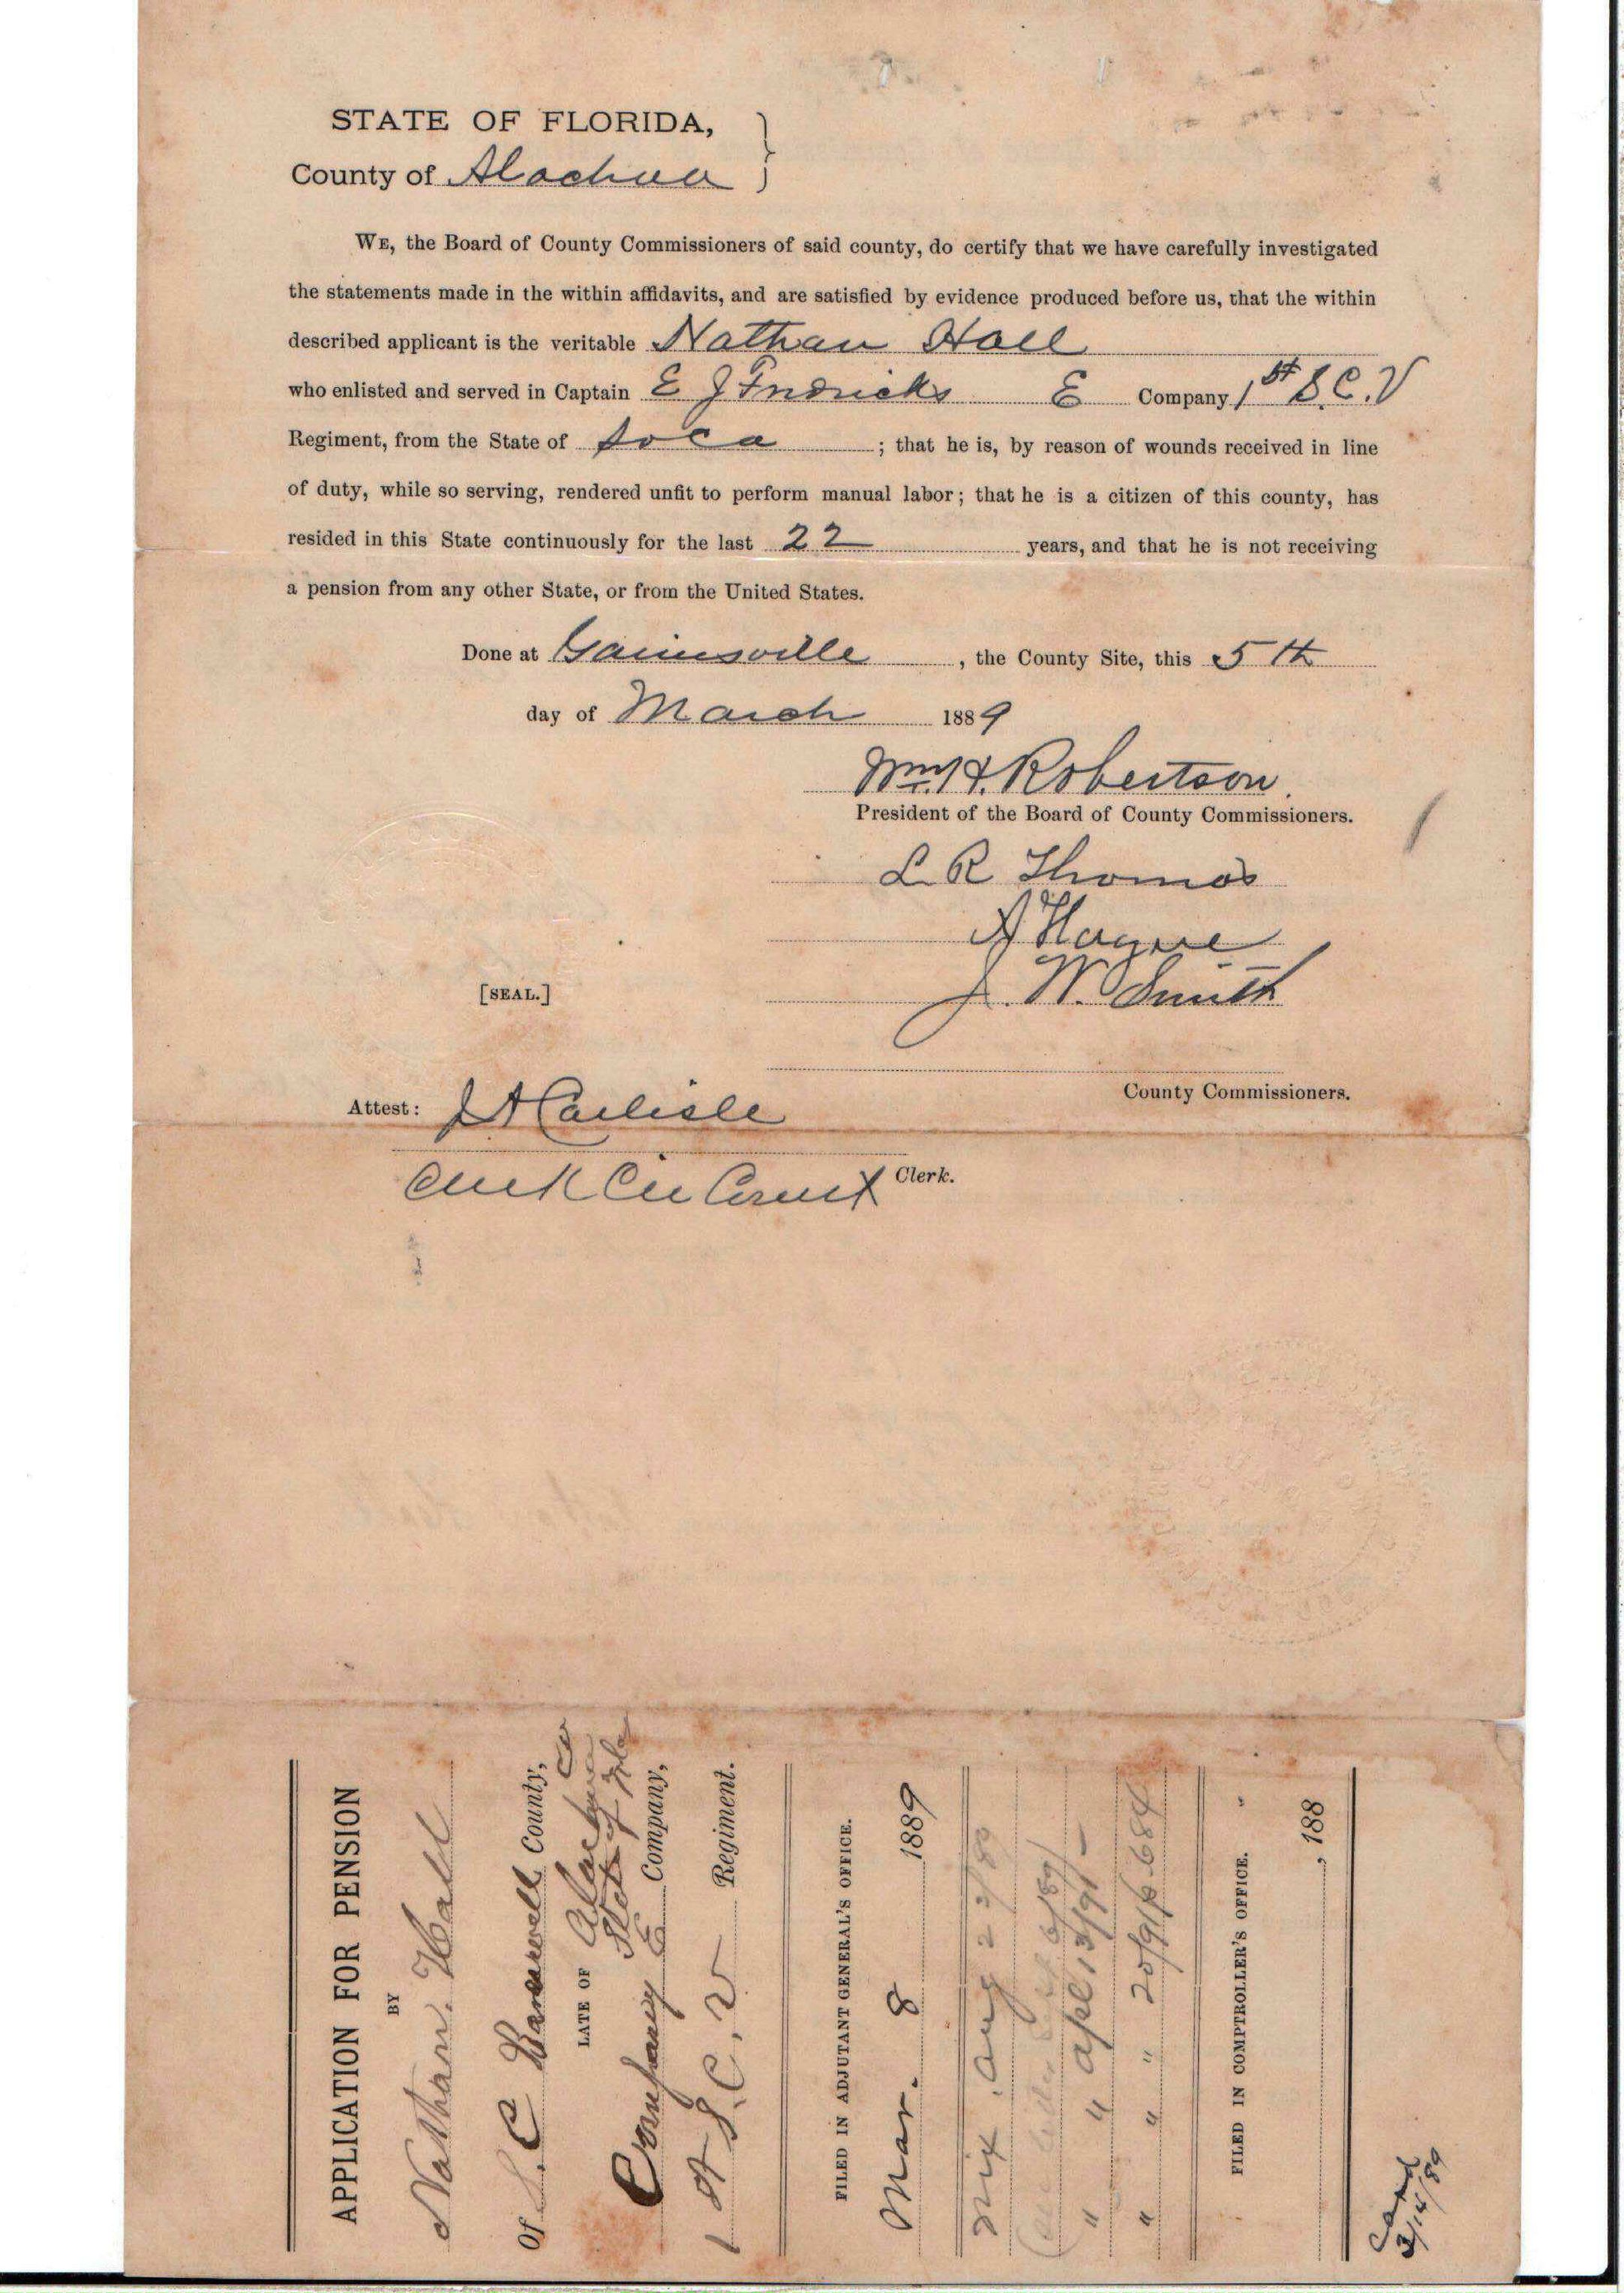 STATE OF FLORIDA,
County of Alachua
WE, the Board of County Commissioners of said county, do certify that we have carefully investigated
the statements made in the within affidavits, and are satisfied by evidence produced before us, that the within
described applicant is the veritable Nathan Hall
who enlisted and served in Captain E J Fridricks E Company 1st S.C.V
Regiment, from the State of So Ca ; that he is, by reason of wounds received in line
of duty, while so serving, rendered unfit to perform manual labor; that he is a citizen of this county, has
resided in this State continuously for the last 22 years, and that he is not receiving
a pension from any other State, or from the United States.
Done at Gainesville , the County Site, this 5th
day of March 1889
Wm. H. Robertson.
President of the Board of County Commissioners.
L R Thomas
A Hague
J. W. Smith
[SEAL.]
County Commissioners.
Attest: J A Carlisle
Clerk Cir Court Clerk.
APPLICATION FOR PENSION
BY
Nathan. Hall
Of S. C Barnwell County,
LATE OF Alachua Co
State of Fla
Company E Company,
1st S. C. V Regiment.
FILED IN ADJUTANT GENERAL'S OFFICE.
Mar. 8 1889
Aug 23/89
" " Apl 13/91 -
" " " 20/91 p. 684
FILED IN COMPTROLLER'S OFFICE.
, 188
3/14/89